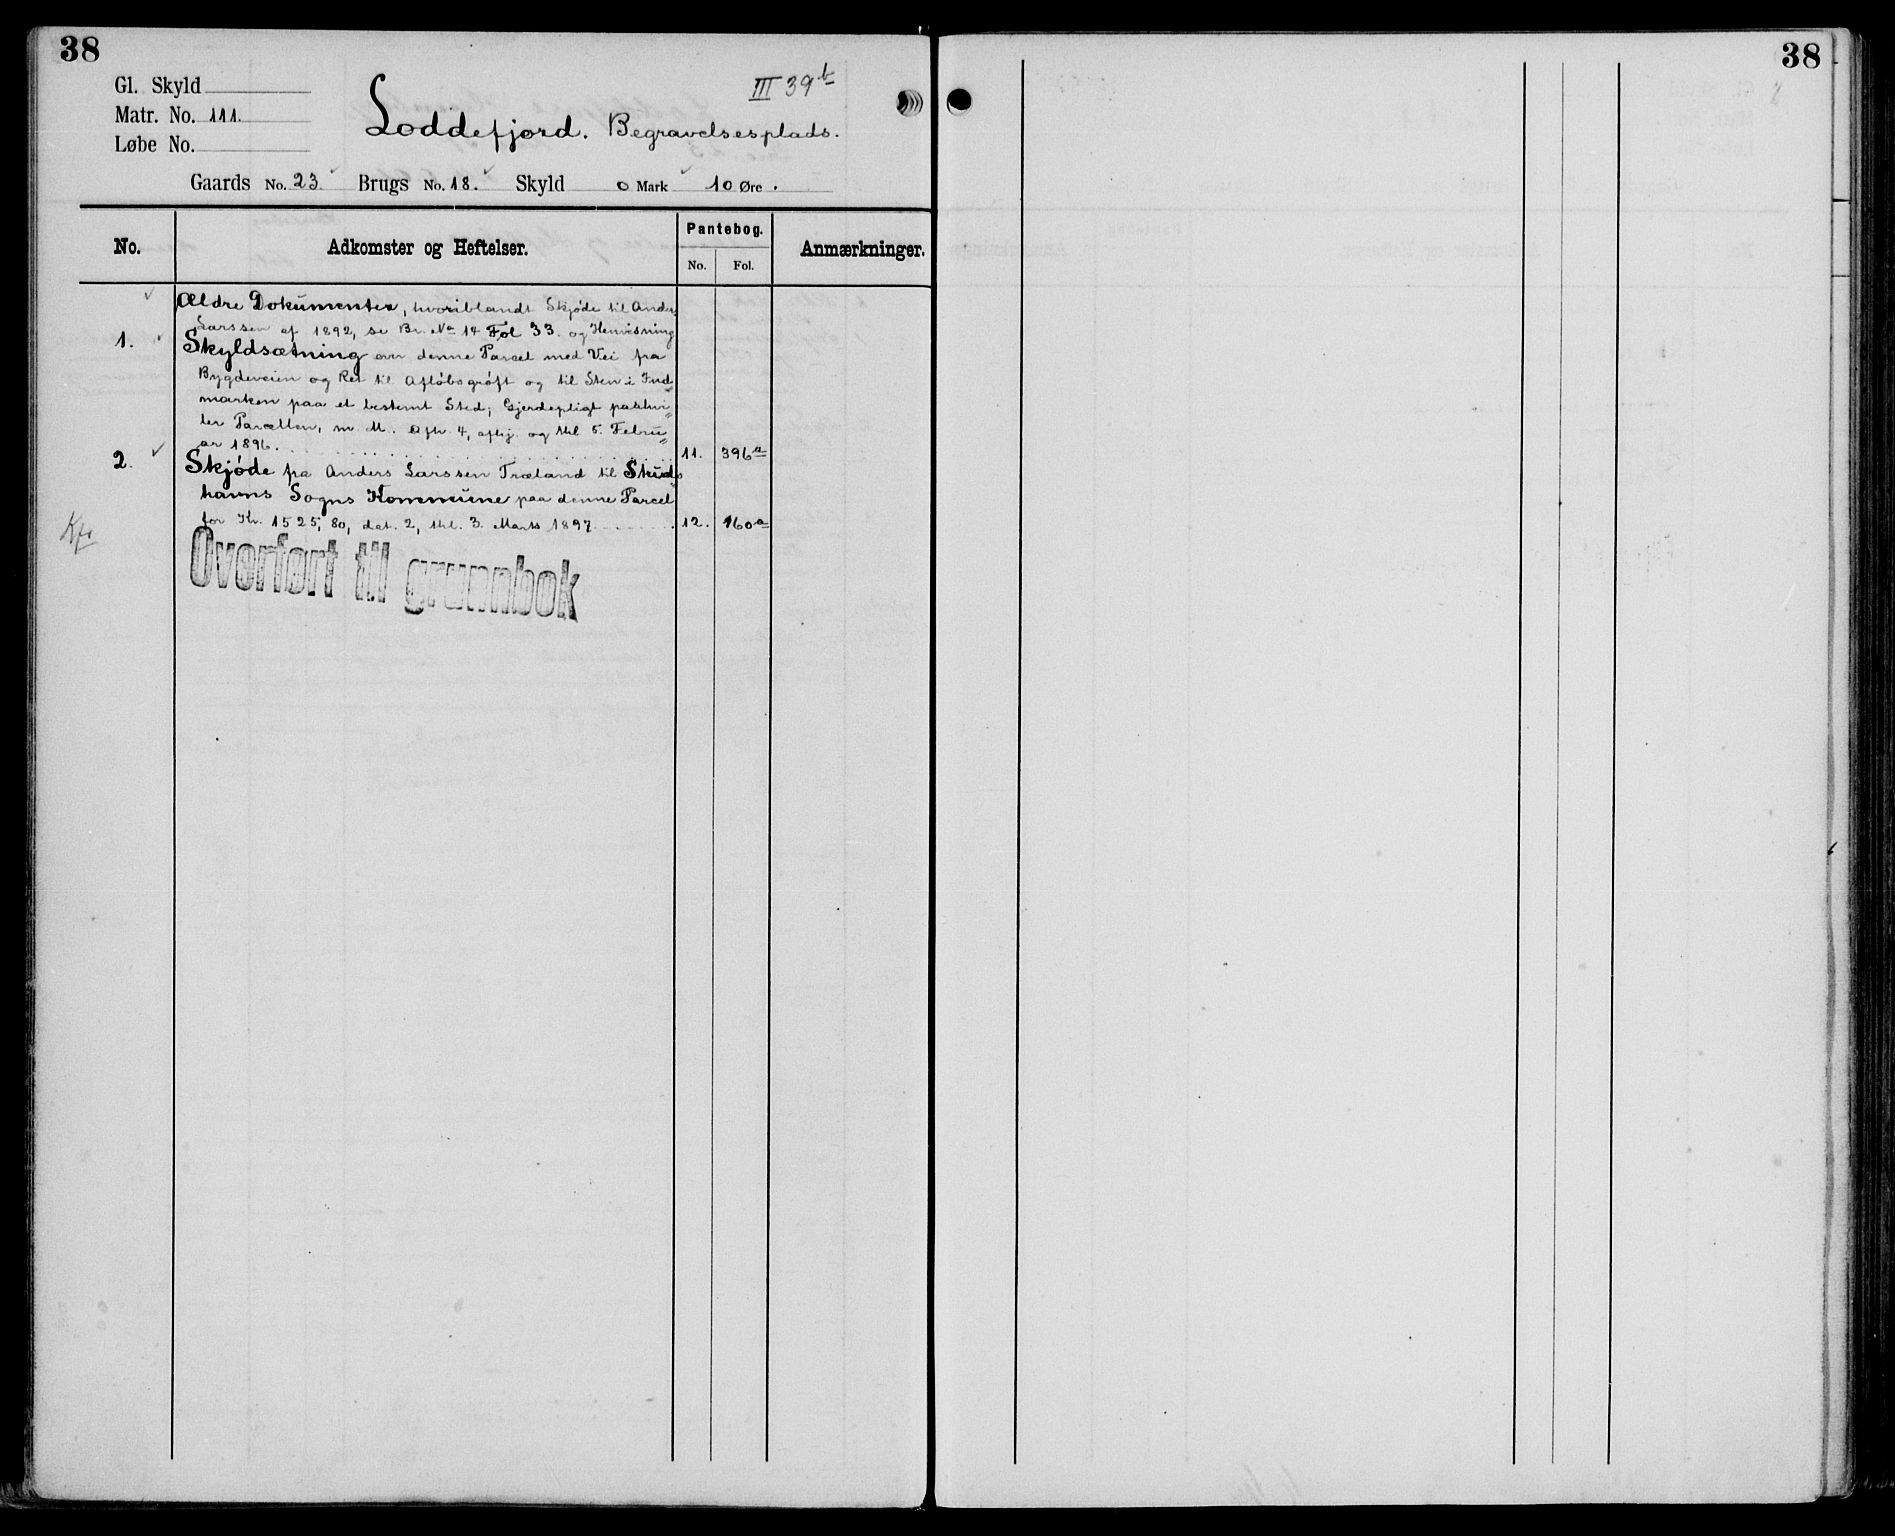 38
38
III 39 b
Gl. Skyld
Matr. No. 111.
Løbe No.
Loddefjord. Begravelsesplads.
Gaards No. 23. Brugs No. 18. Skyld 0 Mark 10 Øre.
No. Adkomster og Heftelser. Pantebog. Anmærkninger.
No. Fol.
Ældre Dokumenter, hvoriblandt Skjøde til Anders
Larssen af 1892, se Br. No 14 Fol 33. og Henvisning
1. Skyldsætning over denne Parcel med Vei fra
Bygdeveien og Ret til Afløbsgrøft og til Sten i Ind„
marken paa et bestemt Sted; Gjerdepligt paahvi„
ler Parcellen, m. M. Afh. 4, afhj. og thl 5. Febru„
ar 1896. 11. 396 a
2. Skjøde fra Anders Larssen Træland til Skuds„
havns Sogns Kommune paa denne Parcel
for Kr. 1525,80, dat. 2, thl. 3. Marts 1897. 12. 160 a
Overført til grunnbok